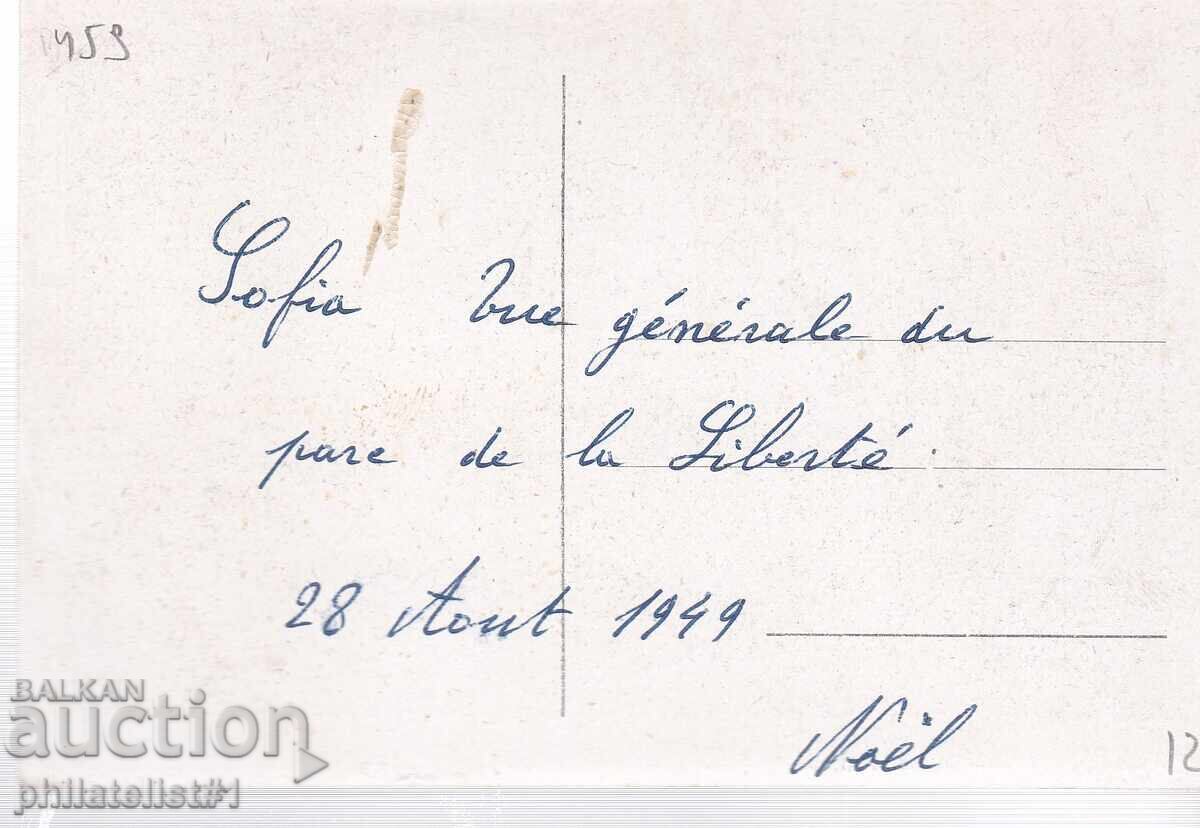 1459
Sofia Vue générale du
parc de la Liberté.
28 Aout 1949
Noël
12
BALKAN
auction
philatelist#1